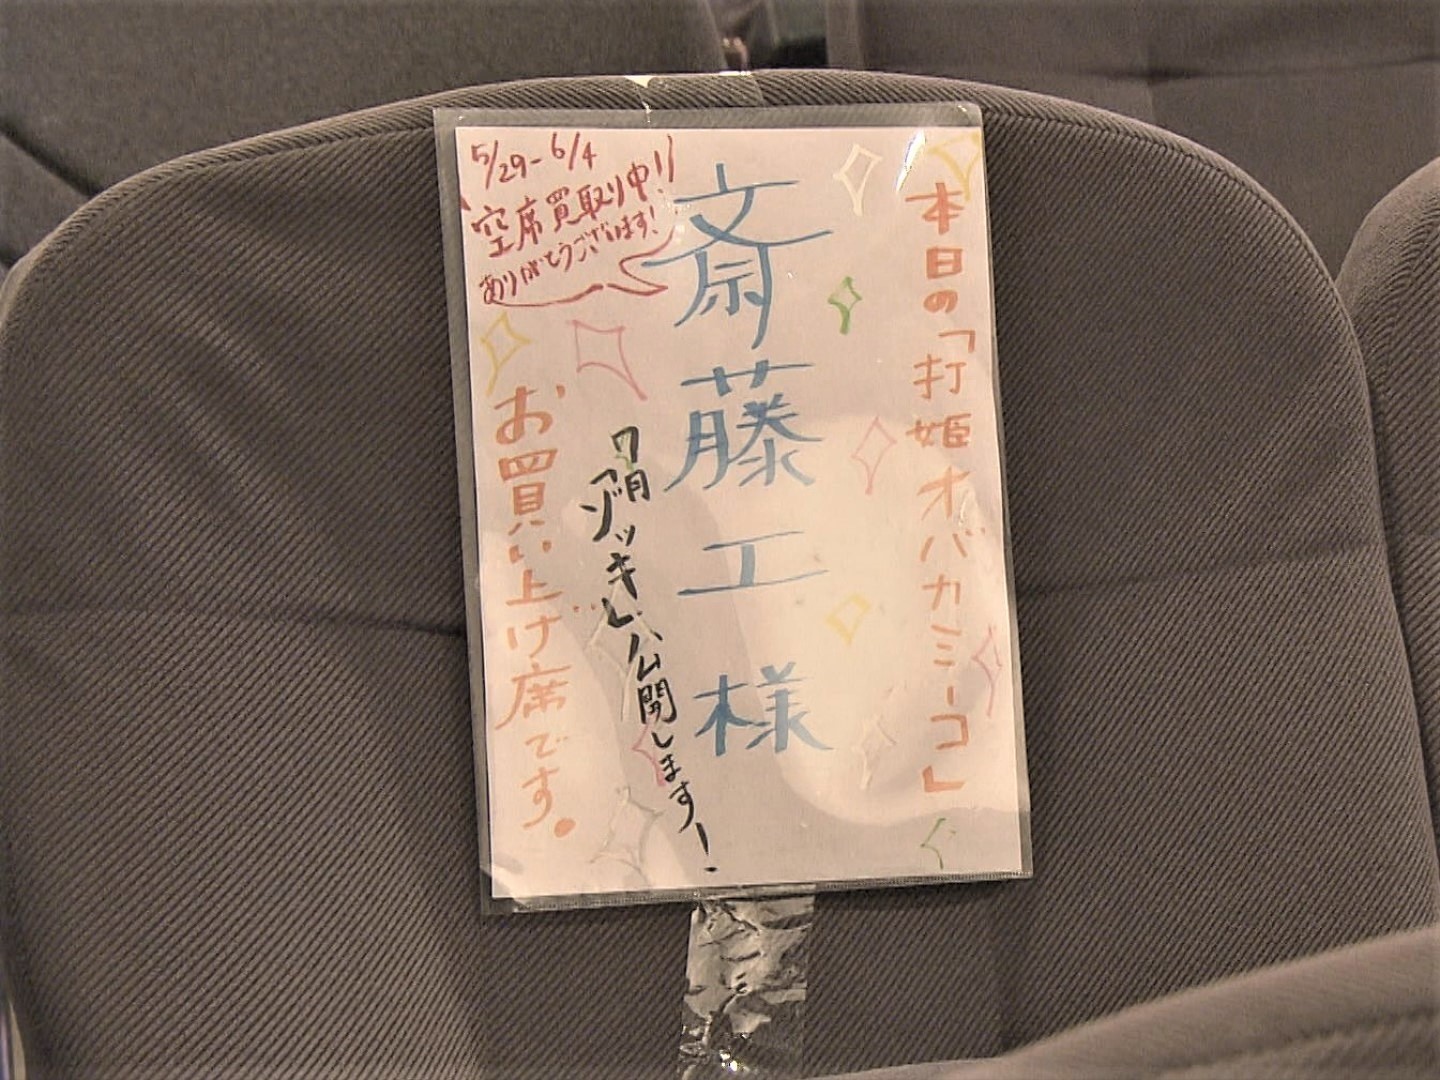 本日の「打姫オバカミーコ」
斎藤工様
5/29-6/4
空席買取り中!!
ありがとうございます!
7月
「ゾッキ」公開します!
お買い上げ席です。